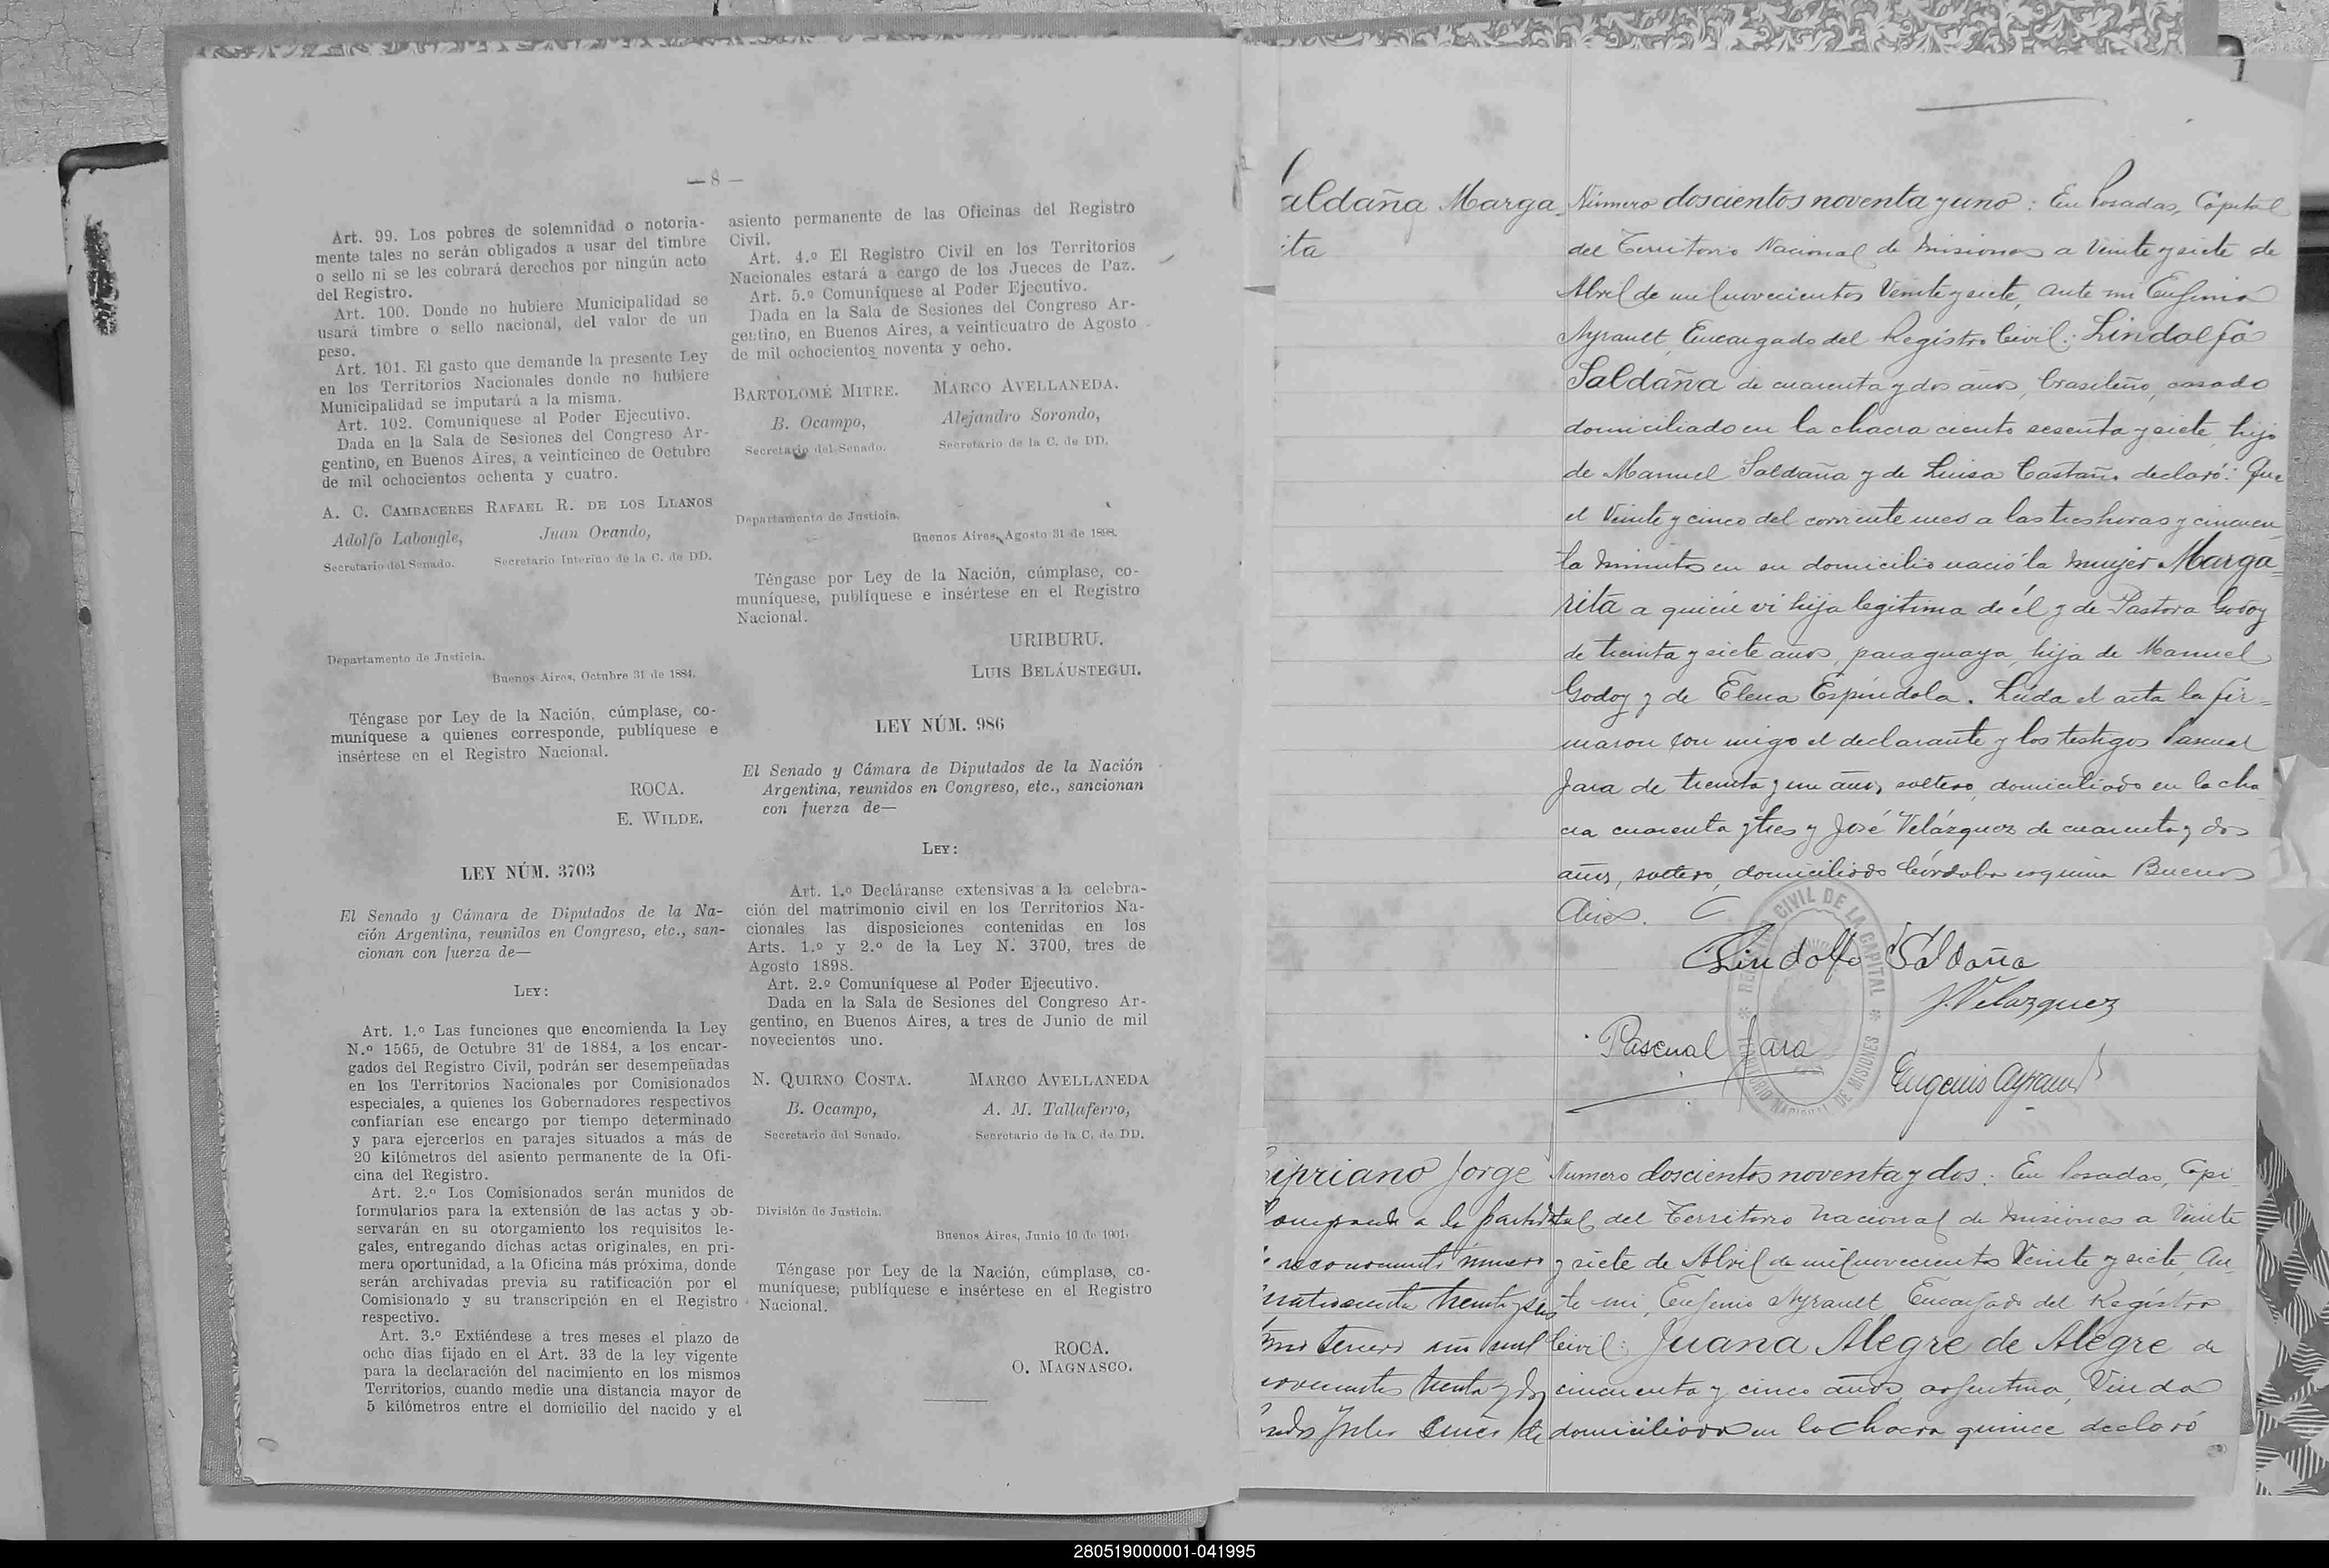 — 8 —
Art. 99. Los pobres de solemnidad o notoria-
mente tales no serán obligados a usar del timbre
o sello ni se les cobrará derechos por ningún acto
del Registro.
Art. 100. Donde no hubiere Municipalidad se
usará timbre o sello nacional, del valor de un
peso.
Art. 101. El gasto que demande la presente Ley
en los Territorios Nacionales donde no hubiere
Municipalidad se imputará a la misma.
Art. 102. Comuníquese al Poder Ejecutivo.
Dada en la Sala de Sesiones del Congreso Ar-
gentino, en Buenos Aires, a veinticinco de Octubre
de mil ochocientos ochenta y cuatro.
A. C. CAMBACERES RAFAEL R. DE LOS LLANOS
Adolfo Labougle, Juan Ovando,
Secretario del Senado. Secretario Interino de la C. de DD.
Departamento de Justicia.
Buenos Aires, Octubre 31 de 1884.
Téngase por Ley de la Nación, cúmplase, co-
muníquese a quienes corresponde, publíquese e
insértese en el Registro Nacional.
ROCA.
E. WILDE.
LEY NÚM. 3703
El Senado y Cámara de Diputados de la Na-
ción Argentina, reunidos en Congreso, etc., san-
cionan con fuerza de—
LEY:
Art. 1.º Las funciones que encomienda la Ley
N.º 1565, de Octubre 31 de 1884, a los encar-
gados del Registro Civil, podrán ser desempeñadas
en los Territorios Nacionales por Comisionados
especiales, a quienes los Gobernadores respectivos
confiarían ese encargo por tiempo determinado
y para ejercerlos en parajes situados a más de
20 kilómetros del asiento permanente de la Ofi-
cina del Registro.
Art. 2.º Los Comisionados serán munidos de
formularios para la extensión de las actas y ob-
servarán en su otorgamiento los requisitos le-
gales, entregando dichas actas originales, en pri-
mera oportunidad, a la Oficina más próxima, donde
serán archivadas previa su ratificación por el
Comisionado y su transcripción en el Registro
respectivo.
Art. 3.º Extiéndese á tres meses el plazo de
ocho días fijado en el Art. 33 de la ley vigente
para la declaración del nacimiento en los mismos
Territorios, cuando medie una distancia mayor de
5 kilómetros entre el domicilio del nacido y el
asiento permanente de las Oficinas del Registro
Civil.
Art. 4.º El Registro Civil en los Territorios
Nacionales estará a cargo de los Jueces de Paz.
Art. 5.º Comuníquese al Poder Ejecutivo.
Dada en la Sala de Sesiones del Congreso Ar-
gentino, en Buenos Aires, a veinticuatro de Agosto
de mil ochocientos noventa y ocho.
BARTOLOMÉ MITRE. MARCO AVELLANEDA.
B. Ocampo, Alejandro Sorondo,
Secretario del Senado. Secretario de la C. de DD.
Departamento de Justicia.
Buenos Aires, Agosto 31 de 1898.
Téngase por Ley de la Nación, cúmplase, co-
muníquese, publíquese e insértese en el Registro
Nacional.
URIBURU.
LUIS BELÁUSTEGUI.
LEY NÚM. 986
El Senado y Cámara de Diputados de la Nación
Argentina, reunidos en Congreso, etc., sancionan
con fuerza de—
LEY:
Art. 1.º Decláranse extensivas a la celebra-
ción del matrimonio civil en los Territorios Na-
cionales las disposiciones contenidas en los
Arts. 1.º y 2.º de la Ley N.º 3700, tres de
Agosto 1898.
Art. 2.º Comuníquese al Poder Ejecutivo.
Dada en la Sala de Sesiones del Congreso Ar-
gentino, en Buenos Aires, a tres de Junio de mil
novecientos uno.
N. QUIRNO COSTA. MARCO AVELLANEDA
B. Ocampo, A. M. Tallaferro,
Secretario del Senado. Secretario de la C. de DD.
División de Justicia.
Buenos Aires, Junio 10 de 1901.
Téngase por Ley de la Nación, cúmplase, co-
muníquese, publíquese e insértese en el Registro
Nacional.
ROCA.
O. MAGNASCO.
Saldaña Marga
ita
Número doscientos noventa y uno: En Posadas, Capital
del Territorio Nacional de Misiones a veinte y siete de
Abril de mil novecientos veinte y siete, ante mi Eugenio
Ayrault, Encargado del Registro Civil: Lindolfo
Saldaña de cuarenta y dos años, brasileño, casado
domiciliado en la chacra ciento sesenta y siete, hijo
de Manuel Saldaña y de Luisa Castaño declaró: Que
el veinte y cinco del corriente mes a las tres horas y cincuen
ta minutos en su domicilio nació la mujer Marga=
rita a quien vi hija legítima de él y de Pastora Godoy
de treinta y siete años, paraguaya, hija de Manuel
Godoy y de Elena Espíndola. Leída el acta la fir=
maron con migo el declarante y los testigos Pascual
Jara de treinta y un años, soltero, domiciliado en la cha
cra cuarenta y tres y José Velázquez de cuarenta y dos
años, soltero, domiciliado Córdoba esquina Buenos
Aires.
REGISTRO CIVIL DE LA CAPITAL
TERRITORIO NACIONAL DE MISIONES
Lindolfo Saldaña
J. Velazquez
Pascual Jara
Eugenio Ayrault
Cipriano Jorge
a la partida
reconocimiento número
treinta y seis
tomo tercero año mil
novecientos treinta y dos
Julio
Número doscientos noventa y dos: En Posadas, Capi
tal del Territorio Nacional de Misiones a veinte
y siete de Abril de mil novecientos veinte y siete, an
te mi, Eugenio Ayrault, Encargado del Registro
Civil: Juana Alegre de Alegre de
cincuenta y cinco años, argentina, viuda
domiciliada en la chacra quince declaró
280519000001-041995